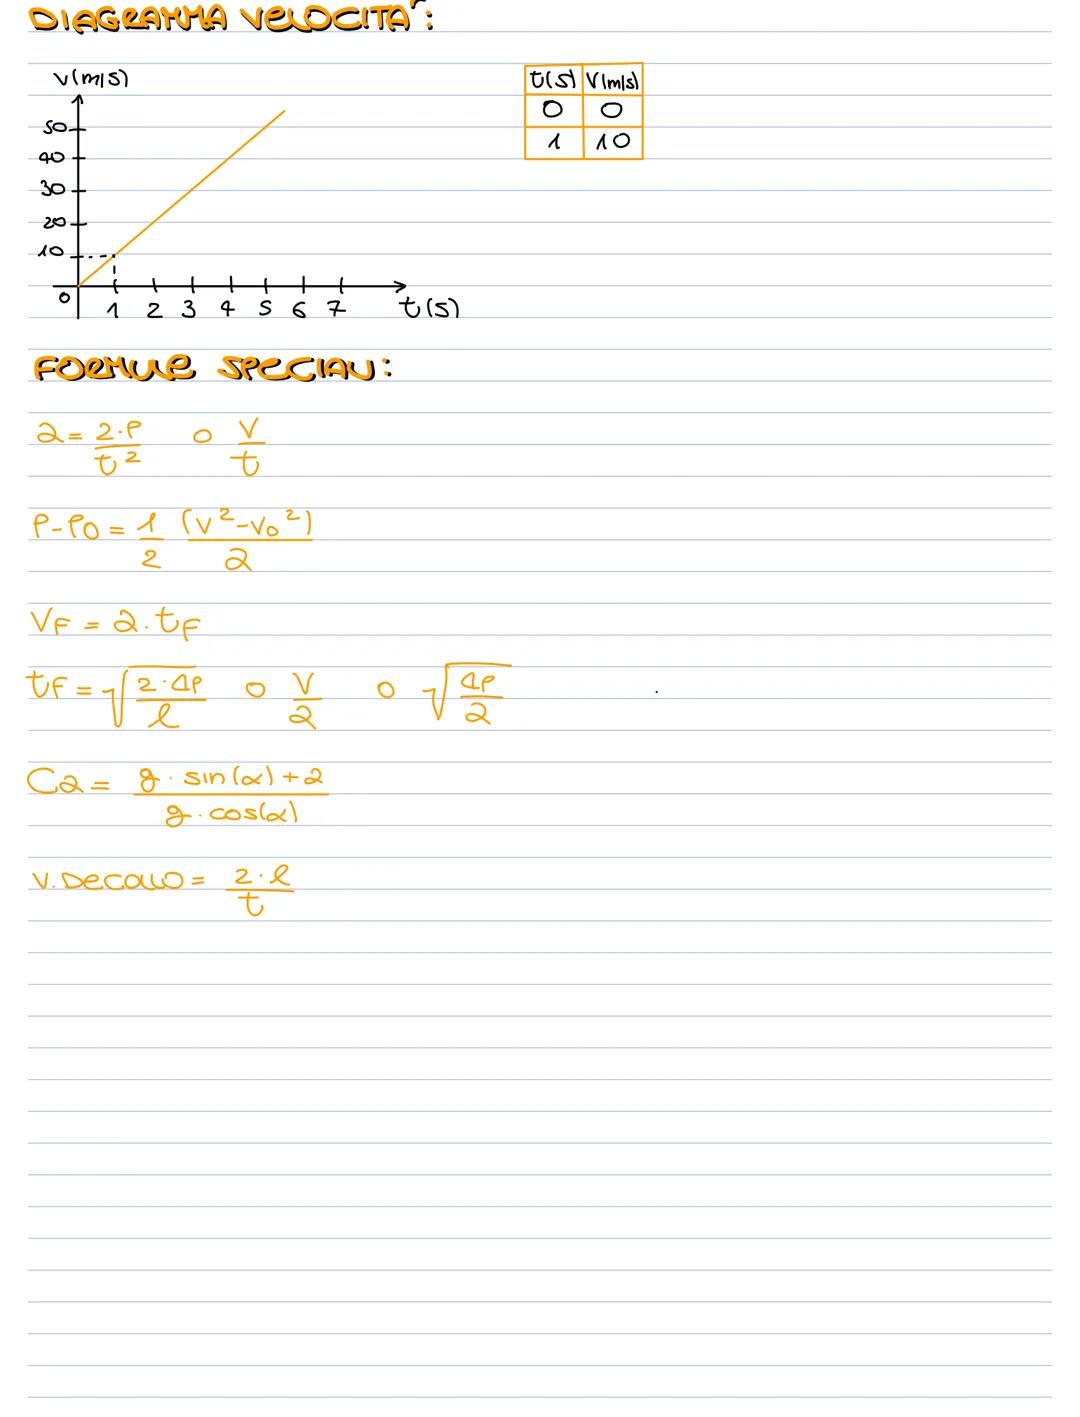 DIAGRAMMA VELOCITA':
V(m/s)
50
40
30
20
10
0
1 2 3 4 5 6 7 t(s)
t(s) V(m/s)
0 0
1 10
FORMULE SPECIALI:
a = 2·P/t² o V/t
P-P0 = 1/2 (V²-V0²)/a
VF = a·tF
tF = √(2·ΔP/l) o V/a o √(ΔP/a)
Ca = g·sin(α)+a / g·cos(α)
V.DECOLLO = 2·l/t